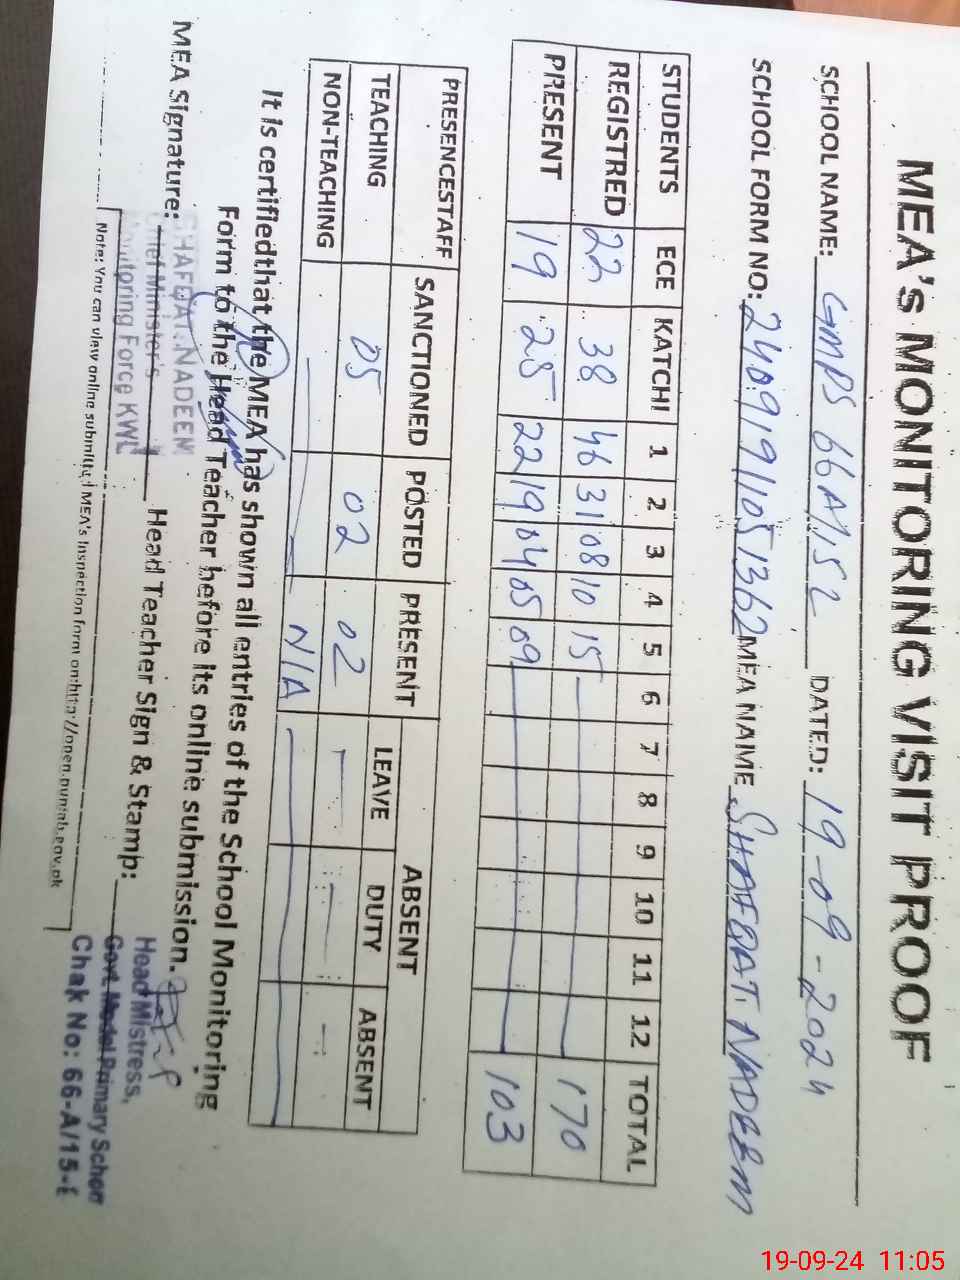 MEA's MONITORING VISIT PROOF
SCHOOL NAME: GMPS 66A/15L DATED: 19-09-2024
SCHOOL FORM NO: 24091911051362 MEA NAME SHAFQAT NADEEM
STUDENTS ECE KATCHI 1 2 3 4 5 6 7 8 9 10 11 12 TOTAL
REGISTRED 22 38 46 31 08 10 15 170
PRESENT 19 25 22 19 04 05 09 103
PRESENCESTAFF SANCTIONED POSTED PRESENT ABSENT
LEAVE DUTY ABSENT
TEACHING 05 02 02 - - -
NON-TEACHING N/A
It is certifiedthat the MEA has shown all entries of the School Monitoring
Form to the Head Teacher before its online submission.
MEA Signature: Head Teacher Sign & Stamp:
SHAFQAT NADEEM
Chief Minister's
Monitoring Force KWL
Head Mistress,
Govt. Model Primary School
Chak No: 66-A/15-L
Note: You can view online submitted MEA's Inspection form on:http://open.punjab.gov.pk
19-09-24 11:05